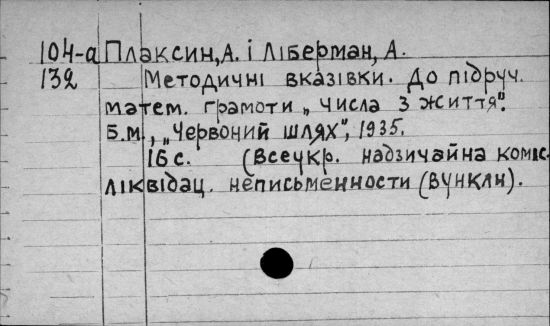 104-а Плаксин, А. і Ліберман, А.
132 Методичні вказівки. До підруч.
матем. грамоти „Числа з життя".
Б.м., „Червоний шлях", 1935.
16 с. (Всеукр. надзичайна коміс.
ліквідац. неписьменности (ВУНКЛН).